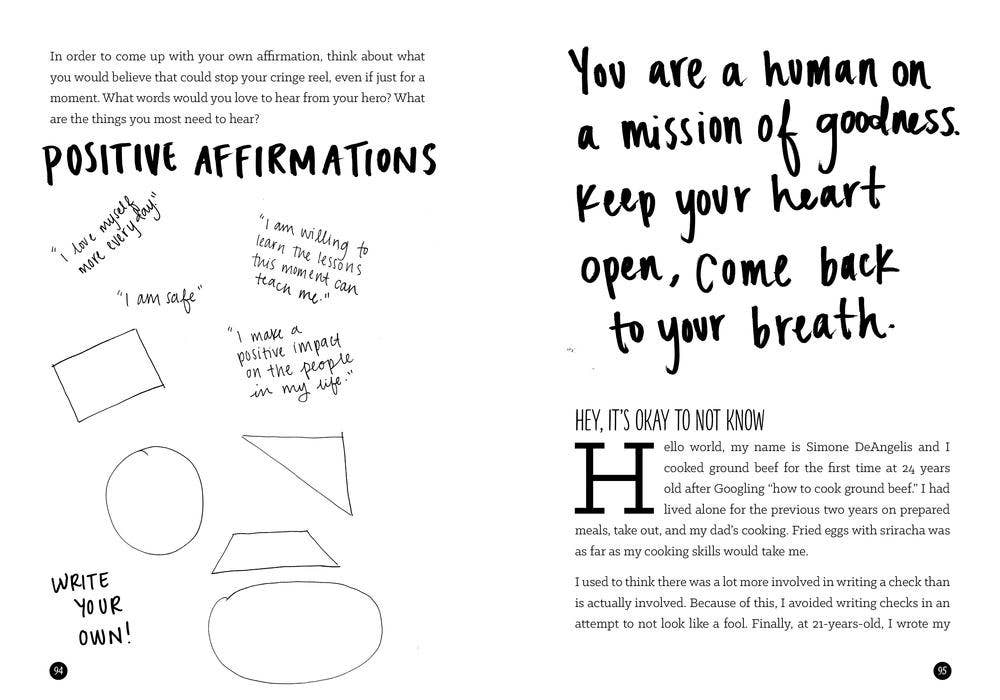 In order to come up with your own affirmation, think about what
you would believe that could stop your cringe reel, even if just for a
moment. What words would you love to hear from your hero? What
are the things you most need to hear?
POSITIVE AFFIRMATIONS
"I love myself
more every day."
"I am willing to
learn the lessons
this moment can
teach me."
"I am safe"
"I make a
positive impact
on the people
in my life."
WRITE
YOUR
OWN!
94
You are a human on
a mission of goodness.
Keep your heart
open, Come back
to your breath.
HEY, IT'S OKAY TO NOT KNOW
Hello world, my name is Simone DeAngelis and I
cooked ground beef for the first time at 24 years
old after Googling "how to cook ground beef." I had
lived alone for the previous two years on prepared
meals, take out, and my dad's cooking. Fried eggs with sriracha was
as far as my cooking skills would take me.
I used to think there was a lot more involved in writing a check than
is actually involved. Because of this, I avoided writing checks in an
attempt to not look like a fool. Finally, at 21-years-old, I wrote my
95